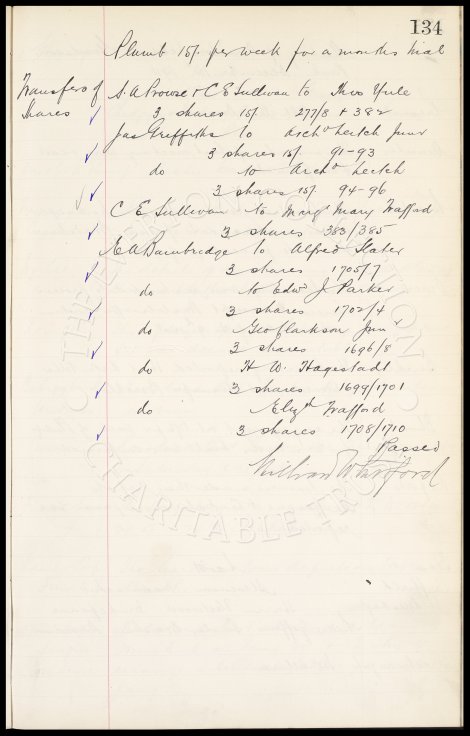 134
Plumb 15/. per week for a months trial
Transfers of Shares
S. A. Prowse & C E Sullivan to Thos Yule
3 shares 15/. 277/8 & 382
Jas Griffiths to Archd Leitch Junr
3 shares 15/. 91-93
do to Archd Leitch
3 shares 15/. 94-96
C E Sullivan to Margt Mary Trafford
3 shares 383/385
E A Bambridge to Alfred Slater
3 shares 1705/7
do to Edwd J Parker
3 shares 1702/4
do Geo Clarkson Junr
3 shares 1696/8
do H W. Hagestadt
3 shares 1699/1701
do Elizth Trafford
3 shares 1708/1710
Passed
THE EVERTON
COLLECTION
CHARITABLE TRUST